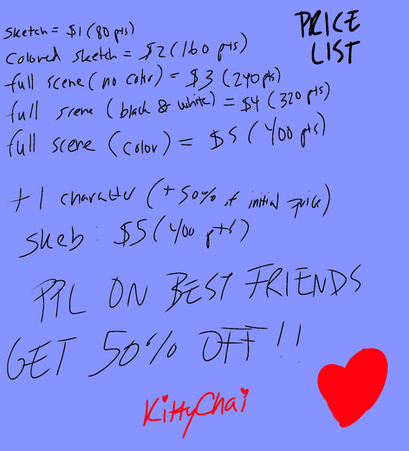 PRICE
LIST
sketch = $1 (80 pts)
Colored sketch = $2 (160 pts)
full scene (no color) = $3 (240 pts)
full scene (black & white) = $4 (320 pts)
full scene (color) = $5 (400 pts)
+1 character (+50% of initial price)
skeb: $5 (400 pts)
PPL ON BEST FRIENDS
GET 50% OFF!!
KittyChai